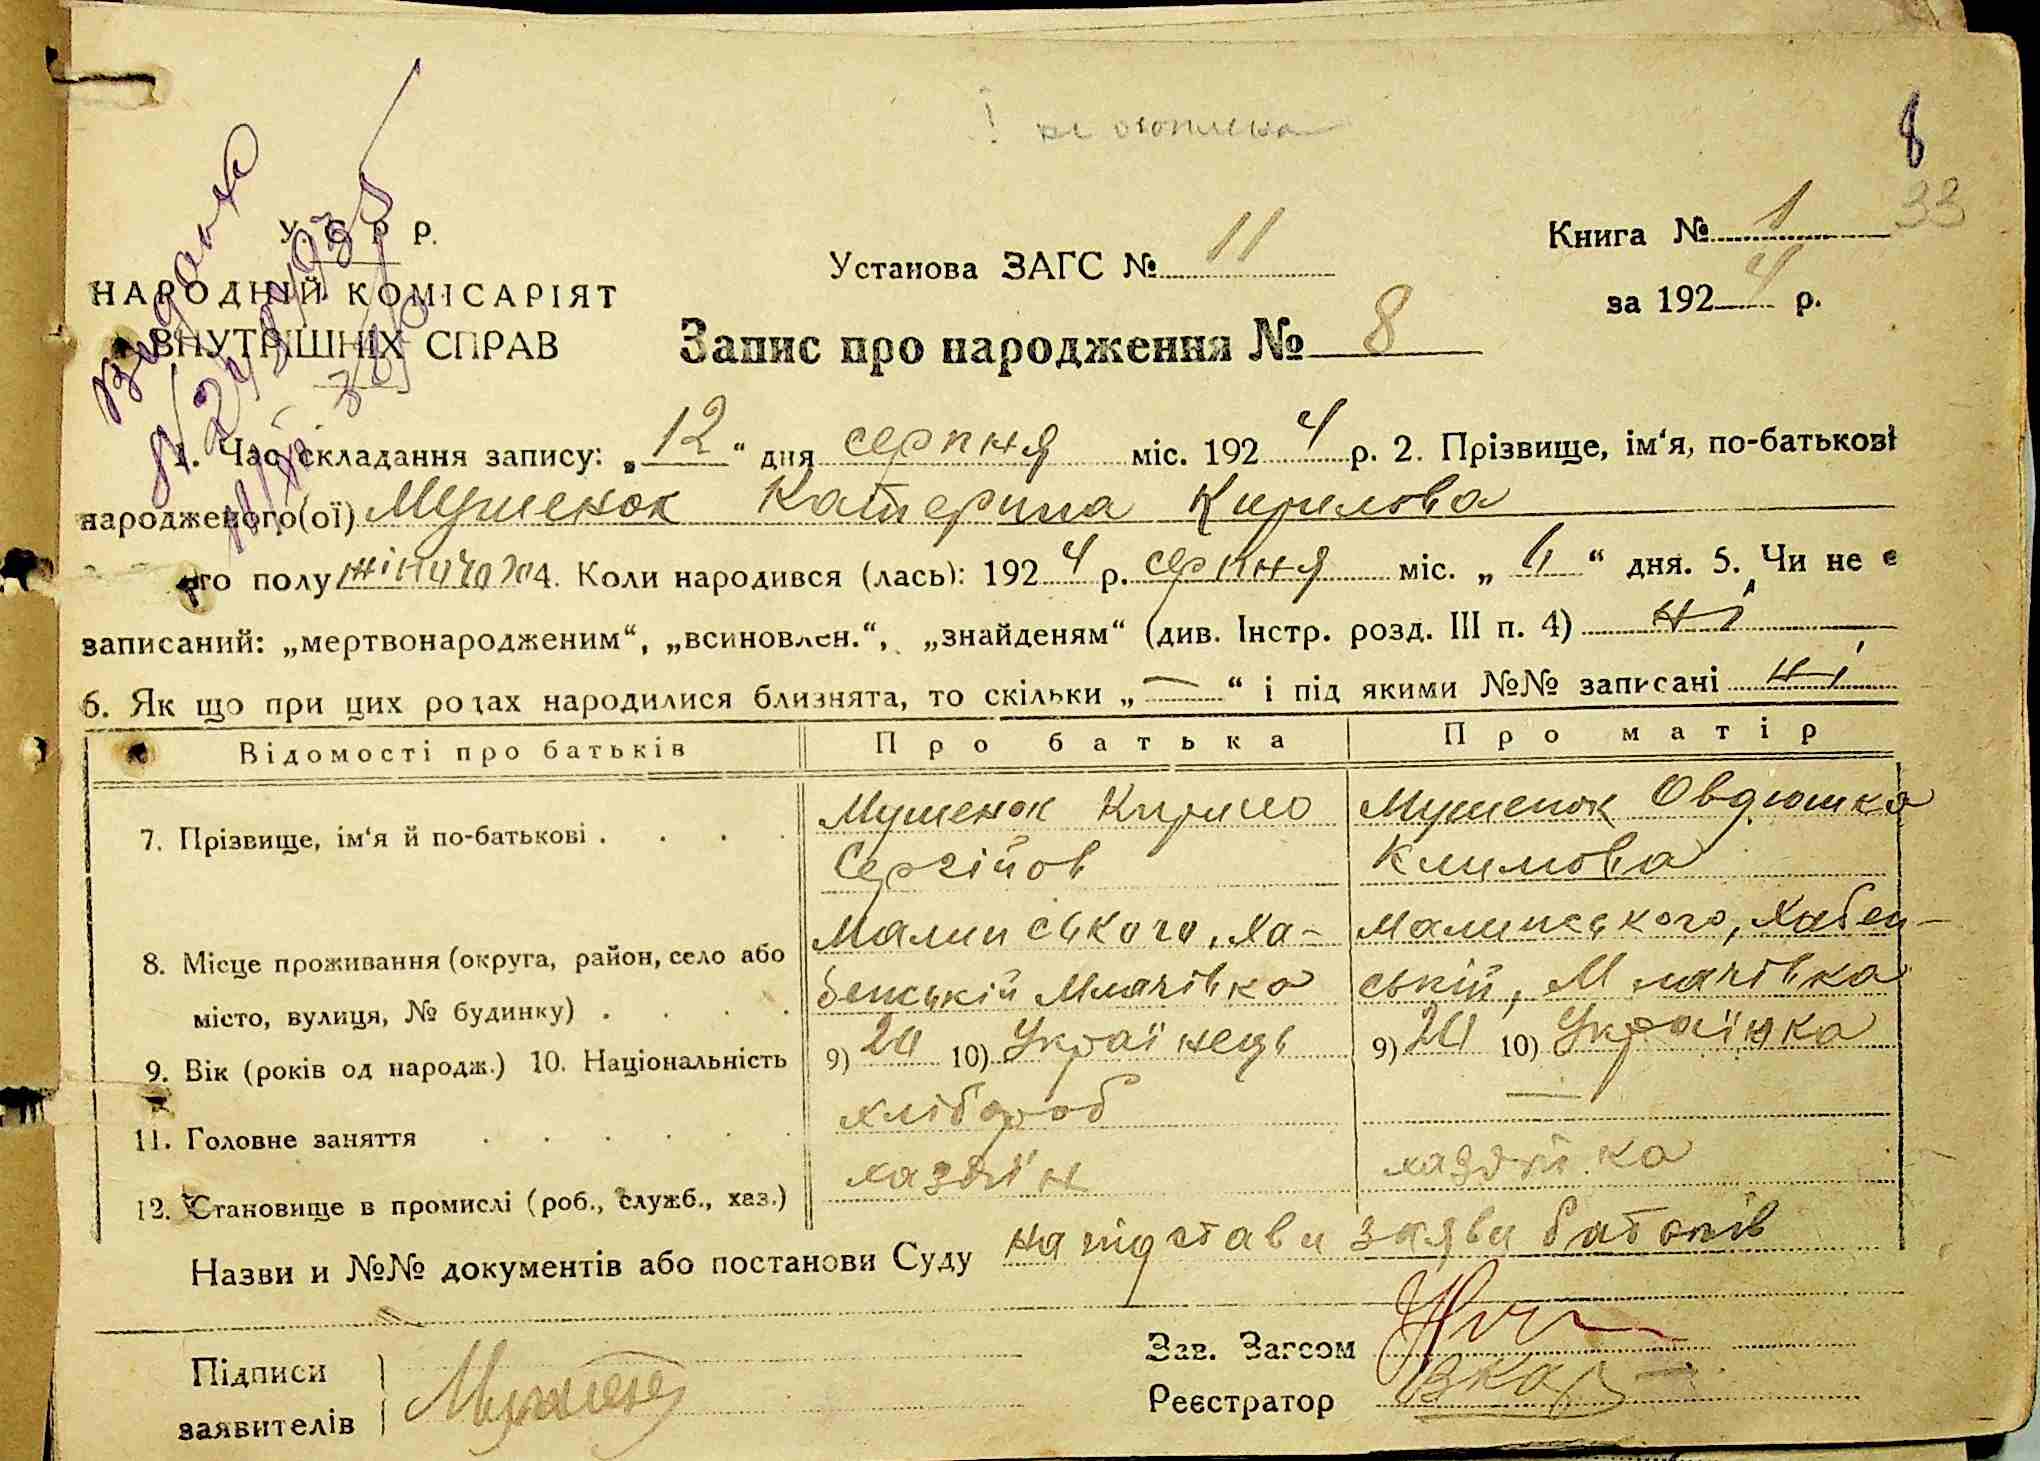 ! не охоплена
8
33
У. С. Р. Р.
НАРОДНІЙ КОМІСАРІЯТ
ВНУТРІШНІХ СПРАВ
Видано
Установа ЗАГС № 11
Книга № 1
за 1924 р.
Запис про народження № 8
1. Час складання запису: „12“ дня серпня міс. 1924 р. 2. Прізвище, ім‘я, по-батькові
народженого(ої) Мушенок Катерина Кирилова
го полу жіночого 4. Коли народився (лась): 1924 р. серпня міс. „ “ дня. 5. Чи не є
записаний: „мертвонародженим“, „всиновлен.“, „знайденям“ (див. Інстр. розд. III п. 4) ні
6. Як що при цих родах народилися близнята, то скільки „—“ і під якими №№ записані ні
Відомості про батьків Про батька Про матір
7. Прізвище, ім‘я й по-батькові . . . . Мушенок Кирило Мушенок Овдюшка
Сергійов Климова
8. Місце проживання (округа, район, село або Малинського, Ха- Малинського, Хабен-
місто, вулиця, № будинку) . . . . бенський Млачівка ський, Млачівка
9. Вік (років од народж.) 10. Національність 9) 24 10) Українець 9) 24 10) Українка
11. Головне заняття . . . . . . хлібороб —
12. Становище в промислі (роб., служб., хаз.) хазяін хазяйка
Назви и №№ документів або постанови Суду на підстави заяви батьків
Підписи
заявителів
Мушенок
Зав. Загсом
Реєстратор